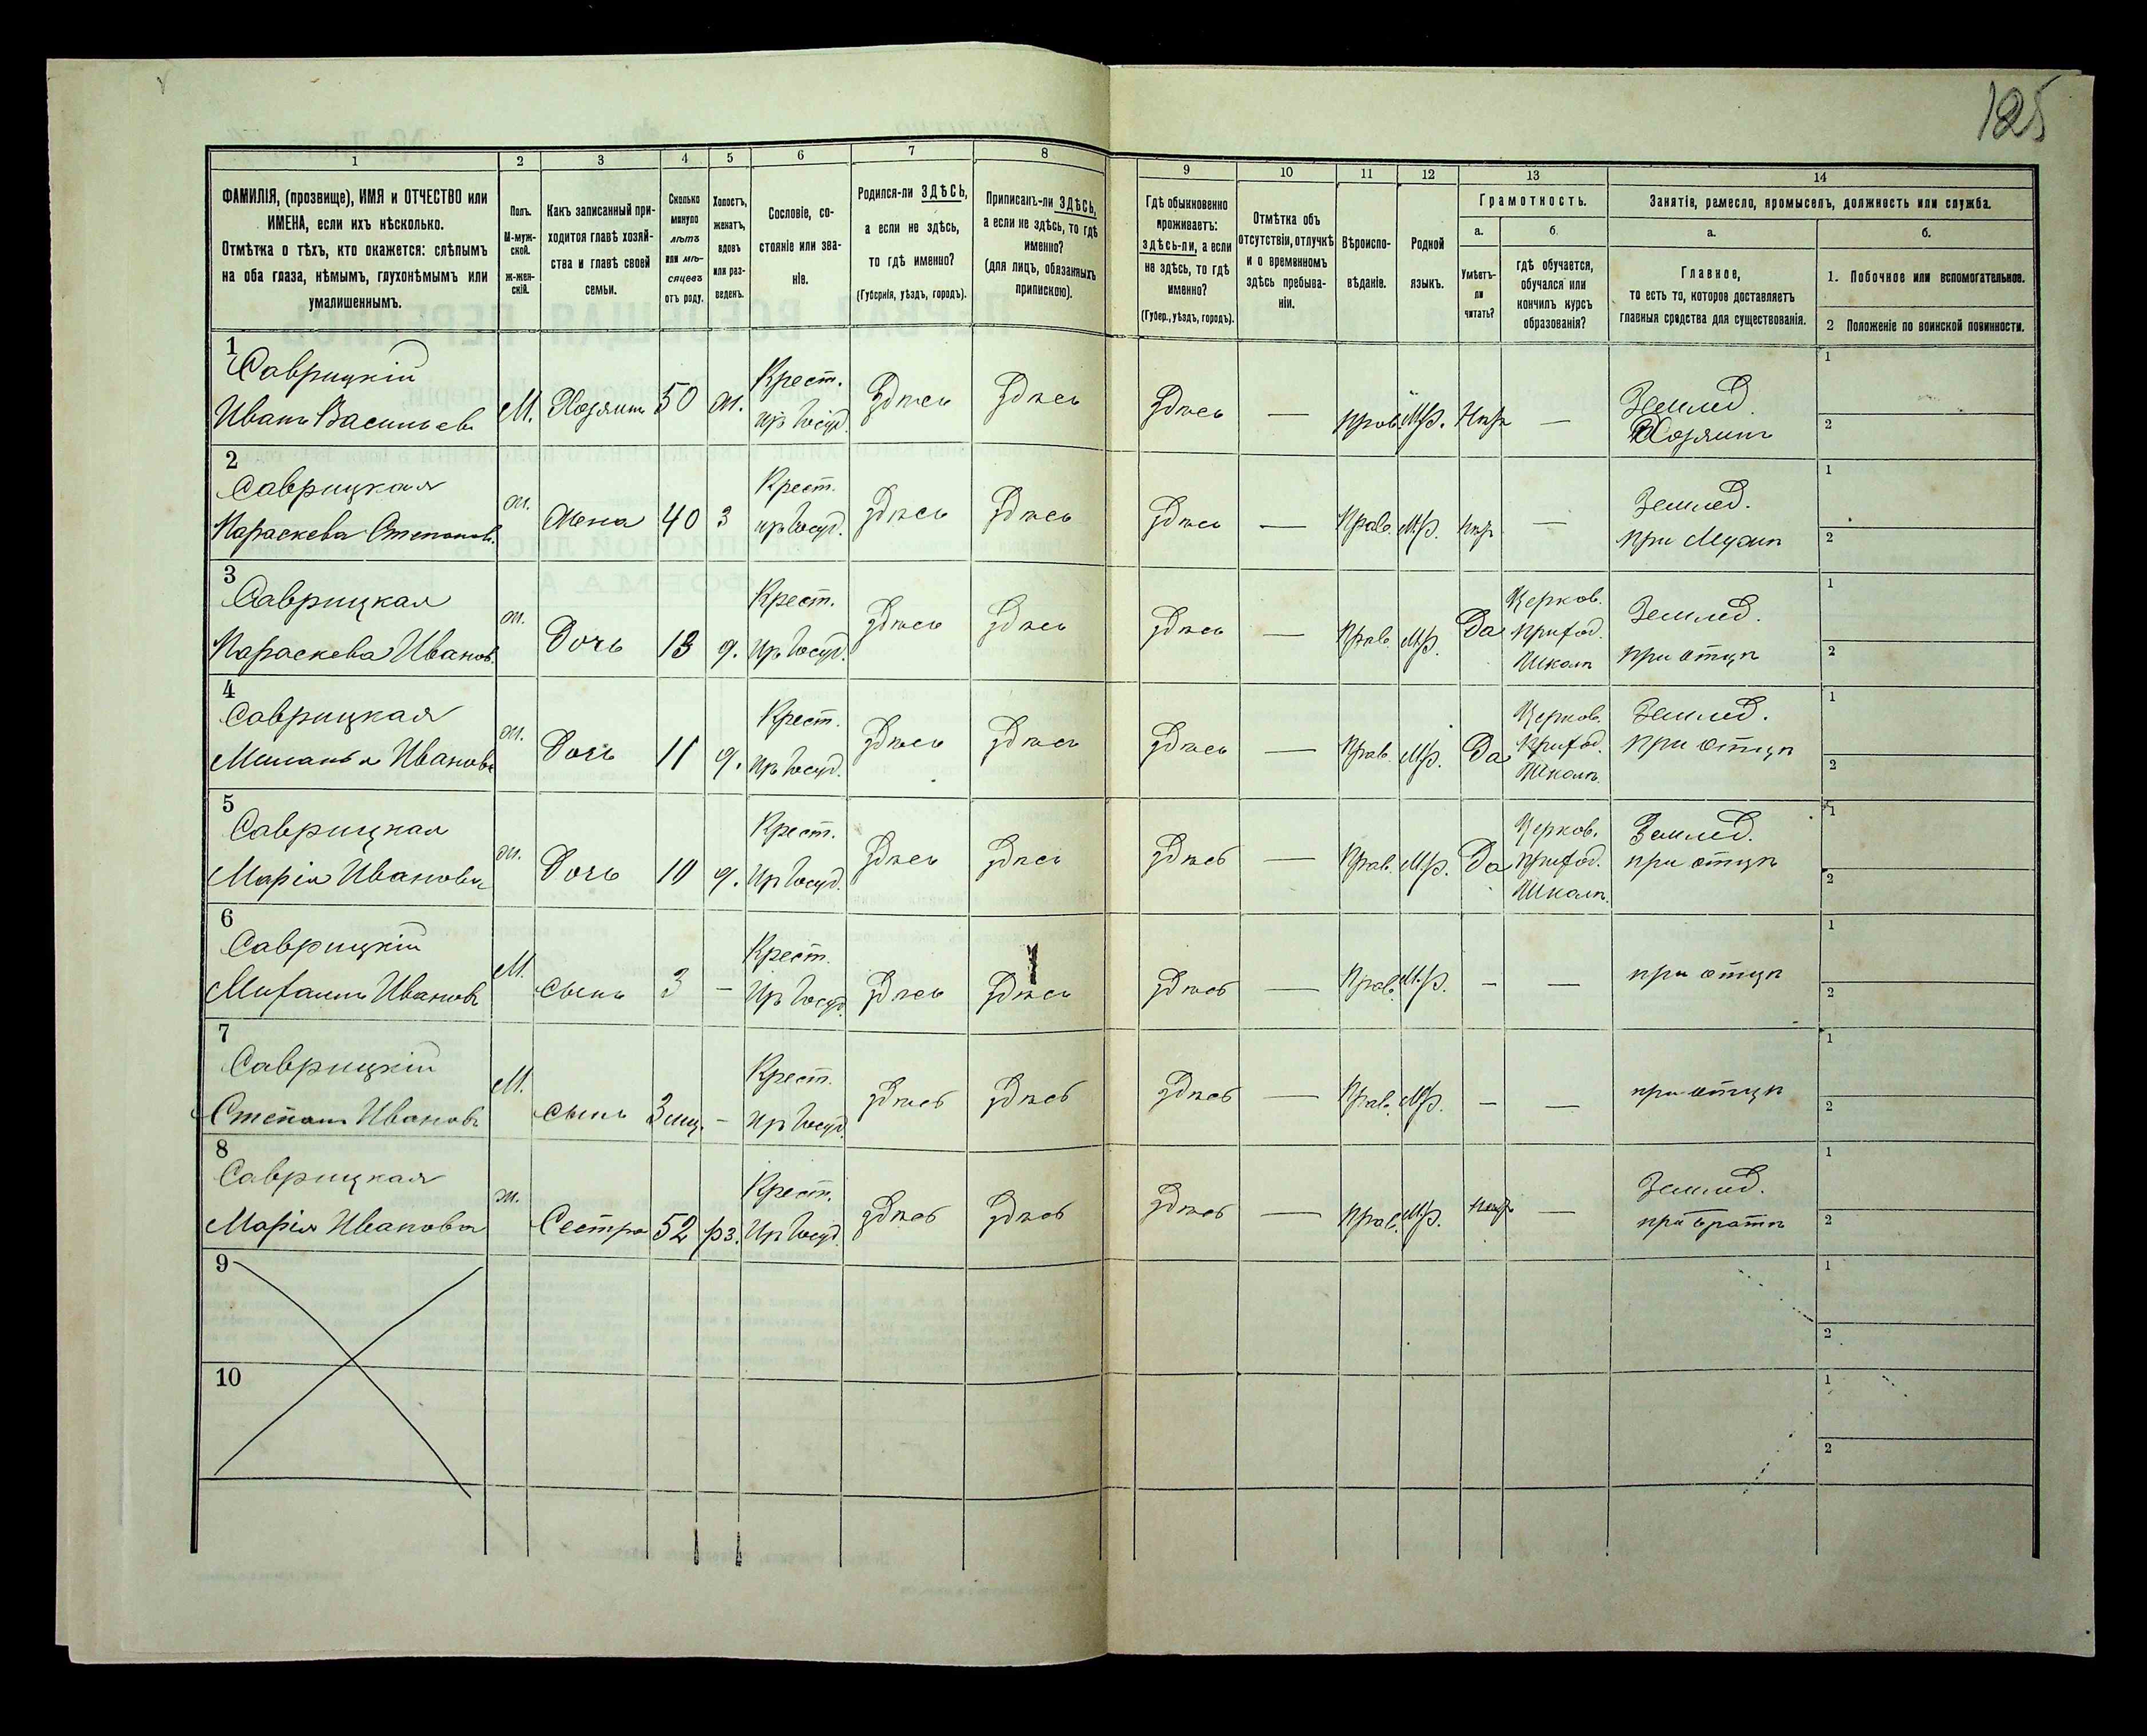 125
1 2 3 4 5 6 7 8 9 10 11 12 13 14
ФАМИЛІЯ, (прозвище), ИМЯ и ОТЧЕСТВО или
ИМЕНА, если ихъ нѣсколько.
Отмѣтка о тѣхъ, кто окажется: слѣпымъ
на оба глаза, нѣмымъ, глухонѣмымъ или
умалишеннымъ.
Полъ.
М-муж-
ской.
Ж-жен-
скій.
Какъ записанный при-
ходится главѣ хозяй-
ства и главѣ своей
семьи.
Сколько
минуло
лѣтъ
или мѣ-
сяцевъ
отъ роду.
Холостъ,
женатъ,
вдовъ
или раз-
веденъ.
Сословіе, со-
стояніе или зва-
ніе.
Родился-ли ЗДѢСЬ,
а если не здѣсь,
то гдѣ именно?
(Губернія, уѣздъ, городъ).
Приписанъ-ли ЗДѢСЬ,
а если не здѣсь, то гдѣ
именно?
(для лицъ, обязанныхъ
припискою).
Гдѣ обыкновенно
проживаетъ:
здѣсь-ли, а если
не здѣсь, то гдѣ
именно?
(Губер., уѣздъ, городъ).
Отмѣтка объ
отсутствіи, отлучкѣ
и о временномъ
здѣсь пребыва-
ніи.
Вѣроиспо-
вѣданіе.
Родной
языкъ.
Грамотность.
а.
Умѣетъ-
ли
читать?
б.
гдѣ обучается,
обучался или
кончилъ курсъ
образованія?
Занятіе, ремесло, промыселъ, должность или служба.
а.
Главное,
то есть то, которое доставляетъ
главныя средства для существованія.
б.
1. Побочное или вспомогательное.
2 Положеніе по воинской повинности.
1
Саврицкій Крест. Землед. 1
Иванъ Васильев М. Хозяинъ 50 ж. Здѣсь Здѣсь Здѣсь — Прав. М.р. — Хозяинъ 2
2
Саврицкая Крест. Землед. 1
Параскева Степанов. ж. Жена 40 З Здѣсь Здѣсь Здѣсь — Прав. М.р. — при Мужѣ 2
3
Саврицкая Крест. Церков. Землед. 1
Параскева Иванов. ж. Дочь 13 Здѣсь Здѣсь Здѣсь — Прав. М.р. Да Приход. при отцѣ 2
Школѣ
4
Саврицкая Крест. Церков. Землед. 1
Миланья Иванова ж. Дочь 11 Здѣсь Здѣсь Здѣсь — Прав. М.р. Да Приход. при отцѣ 2
Школѣ
5
Саврицкая Крест. Церков. Землед. 1
Марія Иванова ж. Дочь 10 Здѣсь Здѣсь Здѣсь — Прав. М.р. Да Приход. при отцѣ 2
Школѣ
6
Саврицкій Крест. 1
Михаилъ Ивановъ М. Сынъ 3 — Здѣсь Здѣсь Здѣсь — Прав. М.р. — — при отцѣ 2
7
Саврицкій Крест. 1
Степанъ Ивановъ М. Сынъ 3 мц. — Здѣсь Здѣсь Здѣсь — Прав. М.р. — — при отцѣ 2
8
Саврицкая Крест. Землед. 1
Марія Иванова ж. Сестра 52 рз. Здѣсь Здѣсь Здѣсь — Прав. М.р. — при братѣ 2
9 1
2
10 1
2